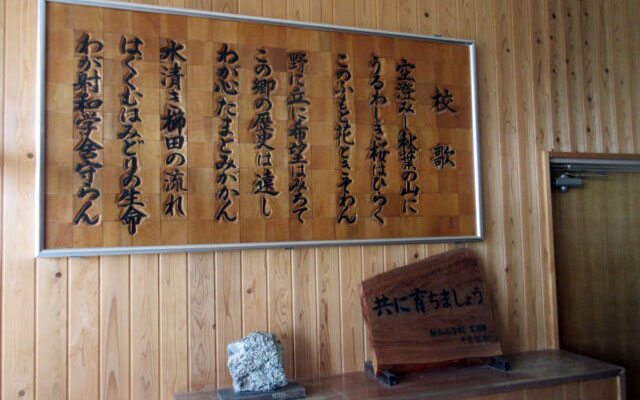 校歌
空澄みし秋葉の山に
うるわしき桜はひらく
このふもと花ときそわん
野に丘に希望はみちて
この郷の歴史は遠し
わが心たまとみがかん
水清き櫛田の流れ
はぐくむはみどりの生命
わが射和学舎守らん
共に育ちましょう